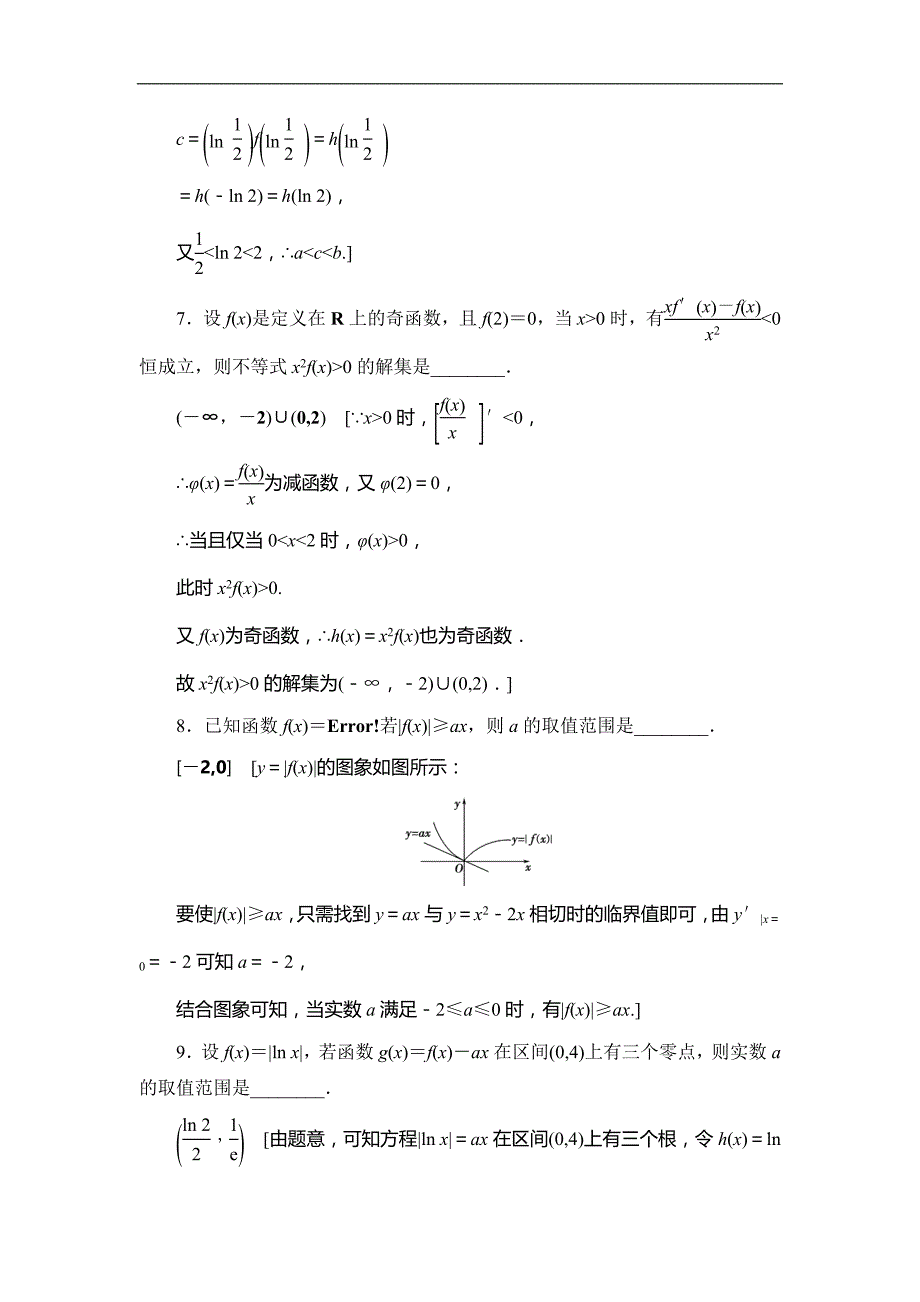 c＝(ln 1/2)f(ln 1/2)＝h(ln 1/2)
＝h(－ln 2)＝h(ln 2)，
又1/2<ln 2<2，∴a<c<b.]
7．设 f(x)是定义在 R 上的奇函数，且 f(2)＝0，当 x>0 时，有 xf′(x)－f(x)/x²<0
恒成立，则不等式 x²f(x)>0 的解集是________．
(－∞，－2)∪(0,2) [∵x>0 时，[f(x)/x]′<0，
∴φ(x)＝f(x)/x为减函数，又 φ(2)＝0，
∴当且仅当 0<x<2 时，φ(x)>0，
此时 x²f(x)>0.
又 f(x)为奇函数，∴h(x)＝x²f(x)也为奇函数．
故 x²f(x)>0 的解集为(－∞，－2)∪(0,2)．]
8．已知函数 f(x)＝Error!若|f(x)|≥ax，则 a 的取值范围是________．
[－2,0] [y＝|f(x)|的图象如图所示：
y
y=ax
y=|f(x)|
O
x
要使|f(x)|≥ax，只需找到 y＝ax 与 y＝x²－2x 相切时的临界值即可，由 y′|x＝
0＝－2 可知 a＝－2，
结合图象可知，当实数 a 满足－2≤a≤0 时，有|f(x)|≥ax.]
9．设 f(x)＝|ln x|，若函数 g(x)＝f(x)－ax 在区间(0,4)上有三个零点，则实数 a
的取值范围是________．
(ln 2/2，1/e) [由题意，可知方程|ln x|＝ax 在区间(0,4)上有三个根，令 h(x)＝ln